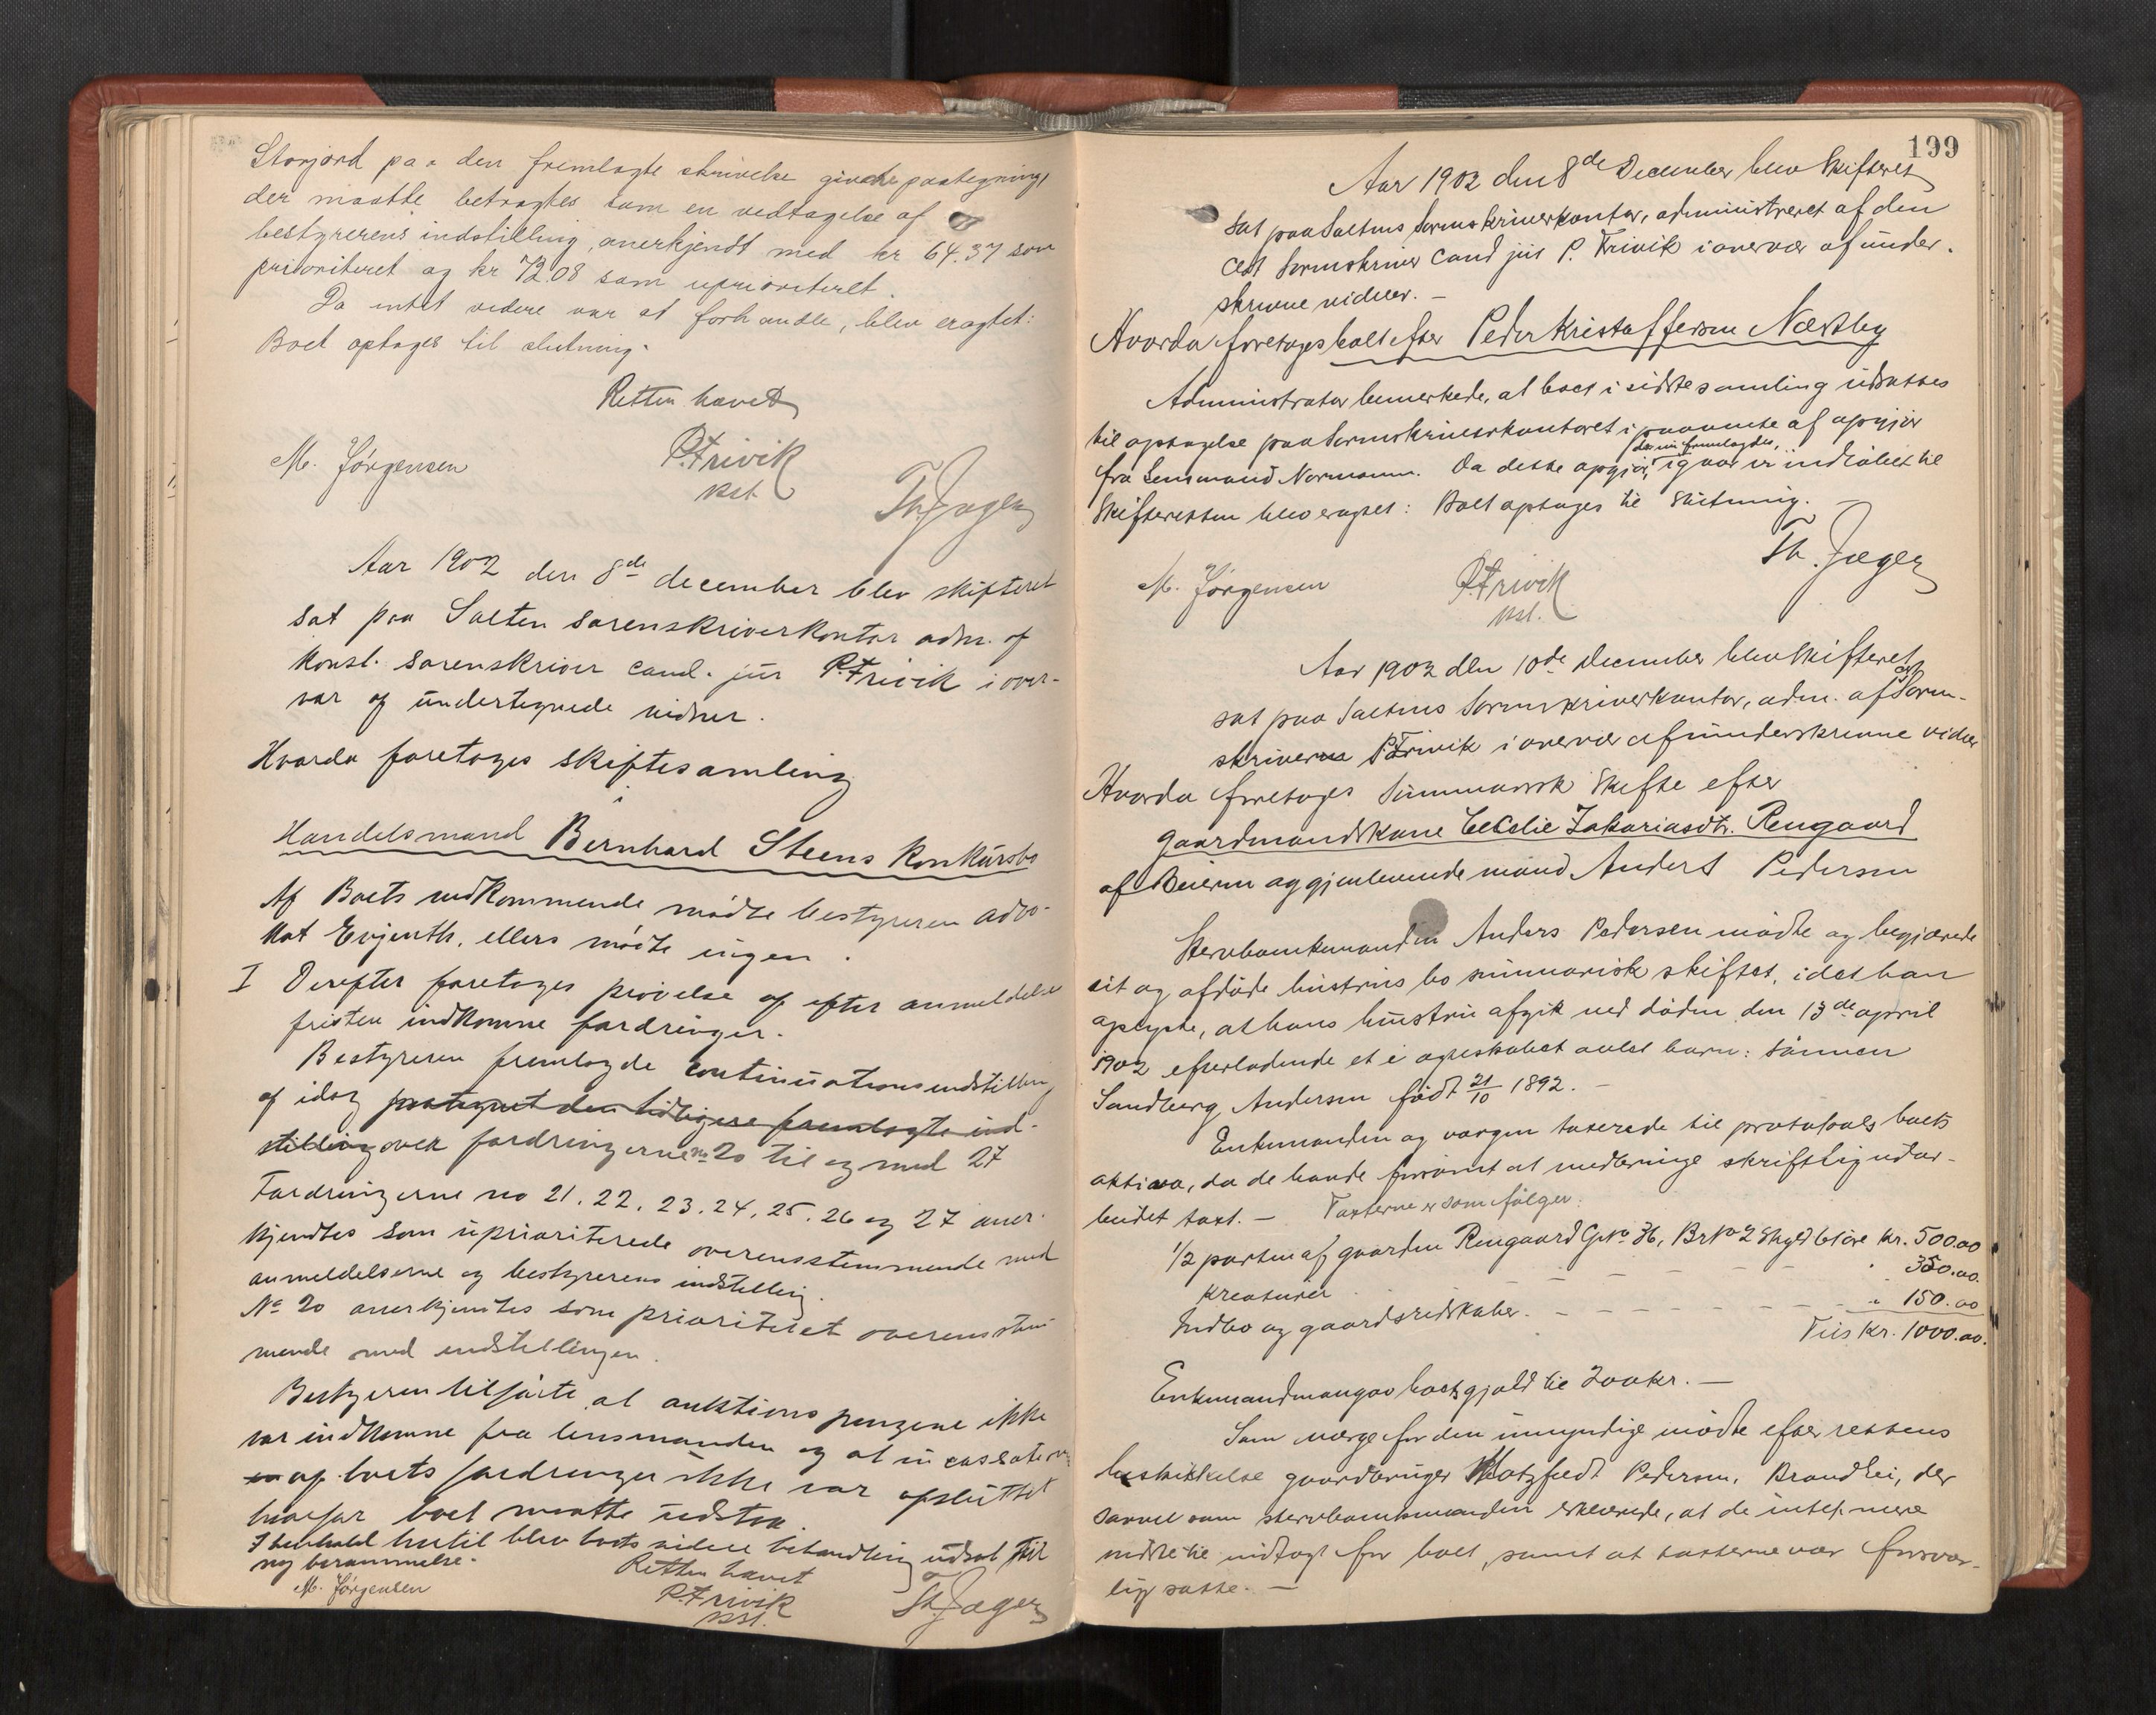 Storjord paa den fremlagte skrivelse givne paategning,
der maatte betragtes som en vedtagelse af
bestyrerens indstilling, anerkjendt med kr 64.37 som
prioriteret og kr 72.08 som uprioriteret.
Da intet videre var at forhandle, blev eragtet:
Boet optages til slutning.
Retten hævet
M. Jørgensen P. Trivik Th. Jæger
kst.
Aar 1902 den 8de december blev skifteret
sat paa Salten sorenskriverkontor adm. af
konst. sorenskriver cand. jur P. Trivik i over-
vær af undertegnede vidner.
Hvorda foretoges skiftesamling
i
Handelsmand Bernhard Steens konkursbo
Af Boets vedkommende mødte bestyreren advo-
kat Evjenth, ellers mødte ingen.
I Derefter foretoges prøvelse af efter anmeldelses
fristen indkomne fordringer.
Bestyreren fremlagde continuationsindstilling
af idag paategnet den tidligere fremlagte ind-
stilling over fordringerne no 20 til og med 27
Fordringerne no 21. 22. 23. 24. 25. 26 og 27 aner-
kjendtes som uprioriterede overensstemmende med
anmeldelserne og bestyrerens indstilling.
No 20 anerkjendtes som prioriteret overensstem
mende med indstillingen.
Bestyreren tilføiede at auktionspengene ikke
var indkomne fra lensmanden og at incassationen
af boets fordringer ikke var afsluttet
hvorfor boet maatte udstaa.
I henhold hertil blev boets videre behandling udsat til
ny berammelse.
Retten hævet
M. Jørgensen P. Trivik Th. Jæger
kst.
199
Aar 1902 den 8de December blev Skifteret
sat paa Saltens Sorenskriverkontor, administreret af den
cst Sorenskriver Cand jur P. Trivik i overvær af under-
skrevne vidner. -
Hvorda foretoges boet efter Peder Kristoffersen Næstby
Administrator bemerkede, at boet i sidste samling udsattes
til optagelse paa Sorenskriverkontoret i paavente af opgjør
der nu fremlagdes,
fra Lensmand Normann. Da dette opgjør, igaar er indløbet til
Skifteretten blev eragtet: Boet optages til Slutning. -
M. Jørgensen P. Trivik Th. Jæger
kst.
Aar 1902 den 10de December blev Skifteret
cst
sat paa Saltens Sorenskriverkontor, adm. af Soren-
skriveren P. Trivik i overvær af underskrevne vidner
Hvorda foretoges Summarisk Skifte efter
gaardmandskone Cecelie Zakariasdtr. Rengaard
af Beieren og gjenlevende mand Anders Pedersen
Stervboenkemanden Anders Pedersen mødte og begjærede
sit og afdøde hustrus bo summarisk skiftet, idet han
oplyste, at hans hustru afgik ved døden den 13de april
1902 efterladende et i egteskabet avlet barn: sønnen
Sandberg Andersen født 21/10 1892. -
Enkemanden og værgen taxerede til protokols boets
aktiva, da de havde forsømt at medbringe skriftlig udar-
beidet taxt. - Taxterne er som følger:
1/2 parten af gaarden Rengaard Gno 36, Brno 2 Skyld 61 øre kr. 500.00
Kreaturer - - - - - " 350.00.
Indbo og gaardsredskaber. - - - - - - " 150.00
Tils kr. 1000.00.
Enkemanden angav boets gjæld til 200 kr. -
Som værge for den umyndige mødte efter rettens
beskikkelse gaardbruger Hatzfeldt Pedersen, Brandlei, der
saavel som stervboenkemanden erklærede, at de intet mere
vidste til indtægt for boet, samt at taxterne var forsvar-
lig satte. -